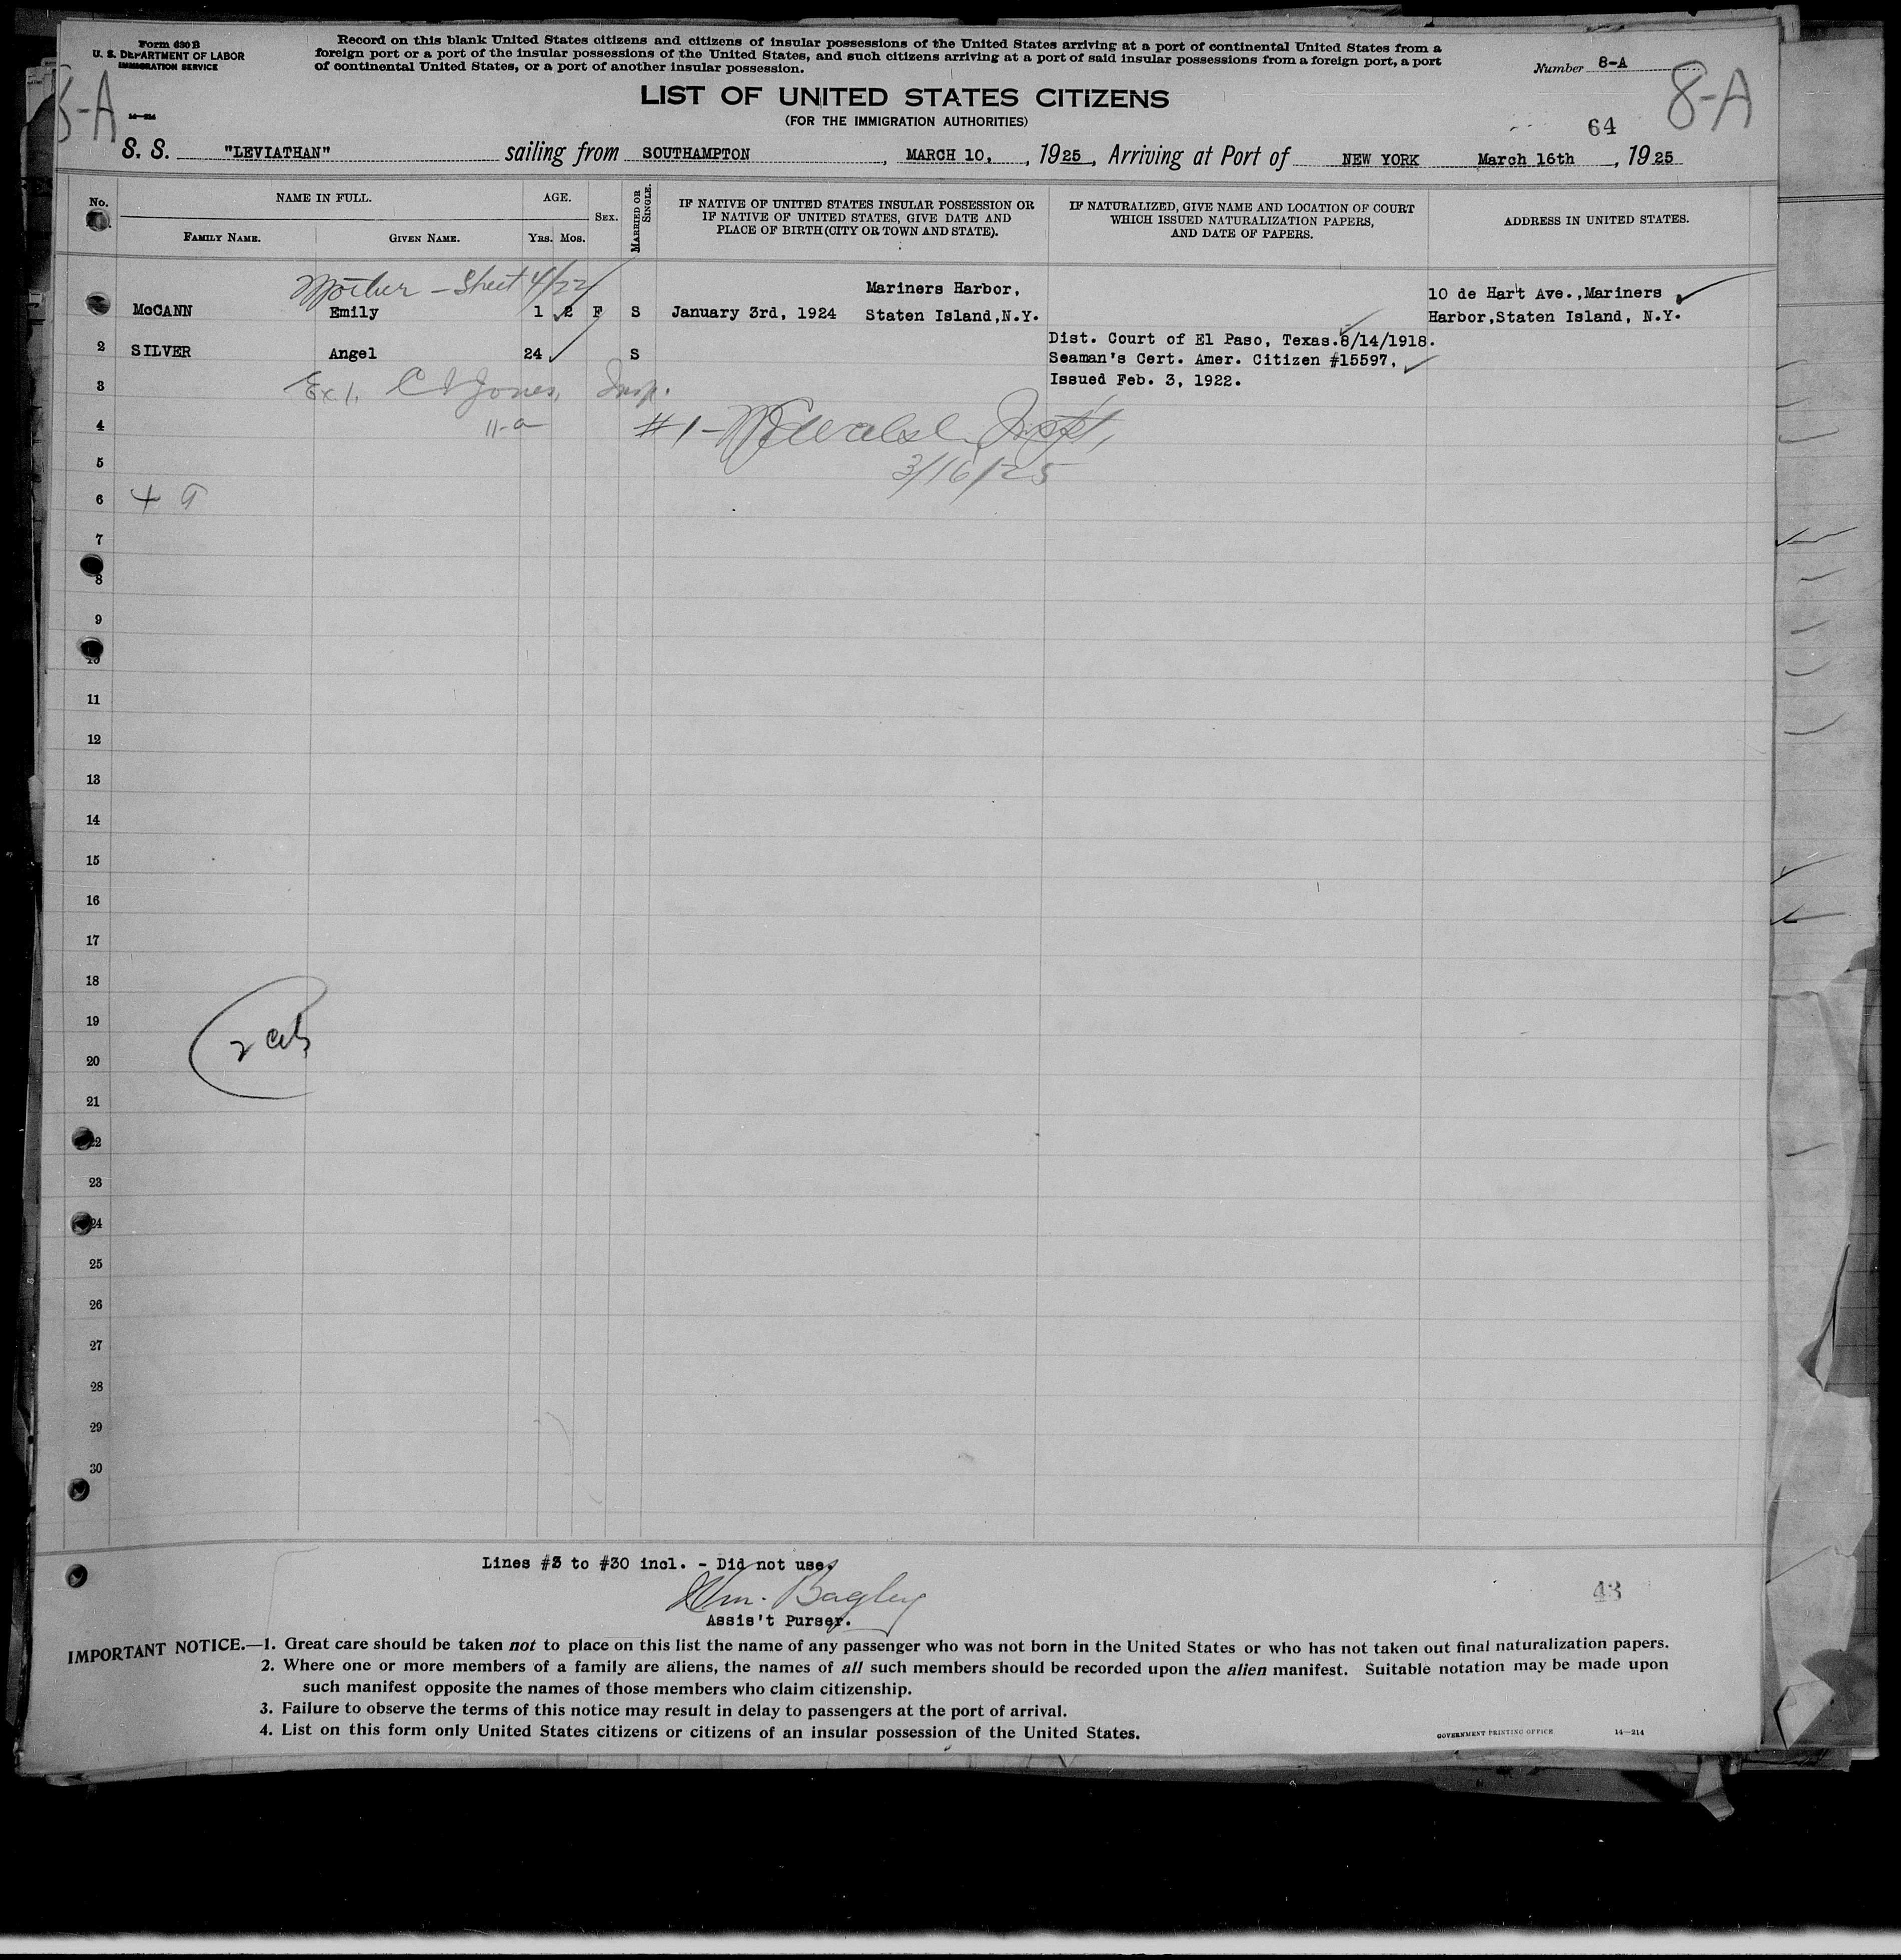 Form 630 B
U. S. DEPARTMENT OF LABOR
IMMIGRATION SERVICE
Record on this blank United States citizens and citizens of insular possessions of the United States arriving at a port of continental United States from a
foreign port or a port of the insular possessions of the United States, and such citizens arriving at a port of said insular possessions from a foreign port, a port
of continental United States, or a port of another insular possession.
Number 8-A
8-A
8-A
14-214
LIST OF UNITED STATES CITIZENS
(FOR THE IMMIGRATION AUTHORITIES)
64
S. S. "LEVIATHAN" sailing from SOUTHAMPTON, MARCH 10, 1925, Arriving at Port of NEW YORK March 16th, 1925
No. NAME IN FULL. AGE. SEX. MARRIED OR SINGLE. IF NATIVE OF UNITED STATES INSULAR POSSESSION OR IF NATIVE OF UNITED STATES, GIVE DATE AND PLACE OF BIRTH (CITY OR TOWN AND STATE). IF NATURALIZED, GIVE NAME AND LOCATION OF COURT WHICH ISSUED NATURALIZATION PAPERS, AND DATE OF PAPERS. ADDRESS IN UNITED STATES.
FAMILY NAME. GIVEN NAME. YRS. MOS.
Mother - Sheet 4/22
Mariners Harbor, 10 de Hart Ave.,Mariners
McCANN Emily 1 2 F S January 3rd, 1924 Staten Island,N.Y. Harbor,Staten Island, N.Y.
Dist. Court of El Paso, Texas.8/14/1918.
2 SILVER Angel 24 S Seaman's Cert. Amer. Citizen #15597,
Issued Feb. 3, 1922.
3 Ex 1, Jones, Insp.
11-a
4 #1-
5 3/16/25
6
7
8
9
10
11
12
13
14
15
16
17
18
19
20
21
22
23
24
25
26
27
28
29
30
Lines #3 to #30 incl. - Did not use.
Wm. Bagley
Assis't Purser.
43
IMPORTANT NOTICE.—1. Great care should be taken not to place on this list the name of any passenger who was not born in the United States or who has not taken out final naturalization papers.
2. Where one or more members of a family are aliens, the names of all such members should be recorded upon the alien manifest. Suitable notation may be made upon
such manifest opposite the names of those members who claim citizenship.
3. Failure to observe the terms of this notice may result in delay to passengers at the port of arrival.
4. List on this form only United States citizens or citizens of an insular possession of the United States.
GOVERNMENT PRINTING OFFICE 14-214